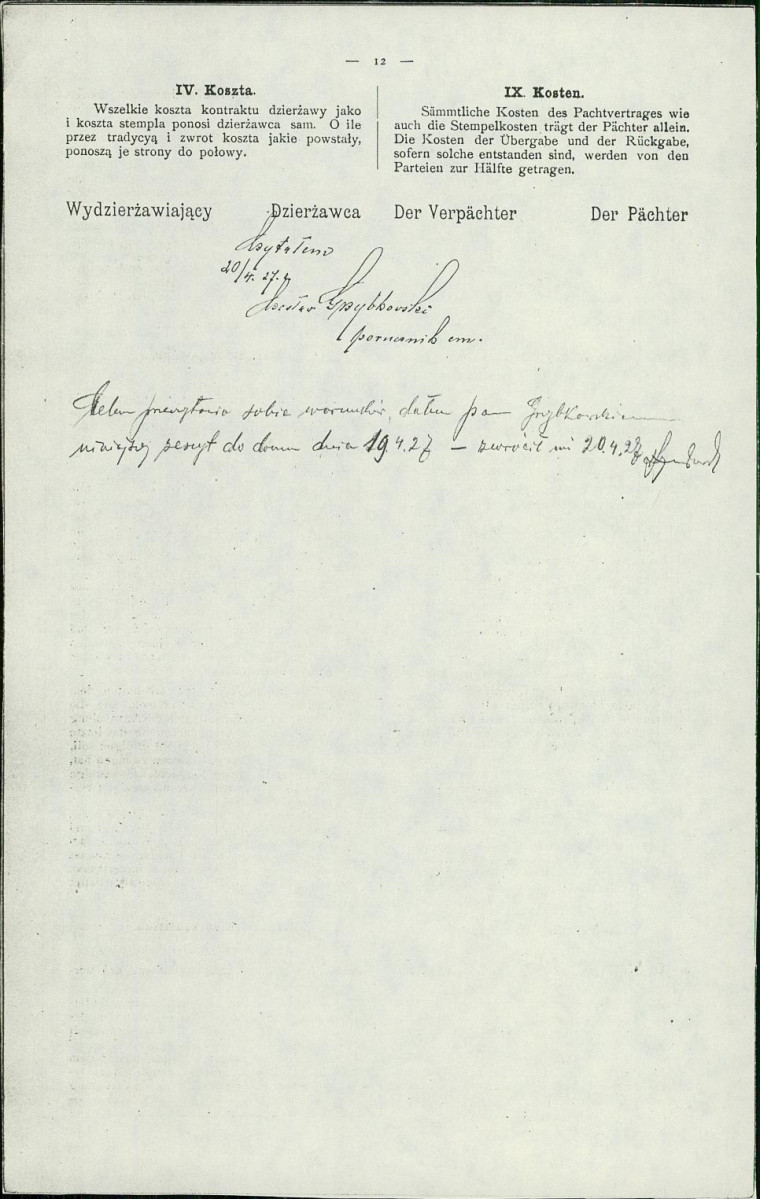 — 12 —
IV. Koszta.
Wszelkie koszta kontraktu dzierżawy jako
i koszta stempla ponosi dzierżawca sam. O ile
przez tradycyą i zwrot koszta jakie powstały,
ponoszą je strony do połowy.
IX. Kosten.
Sämmtliche Kosten des Pachtvertrages wie
auch die Stempelkosten trägt der Pächter allein.
Die Kosten der Übergabe und der Rückgabe,
sofern solche entstanden sind, werden von den
Parteien zur Hälfte getragen.
Wydzierżawiający Dzierżawca Der Verpächter Der Pächter
Czytałem
20/4. 27. r
Grzybkowski
porucznik em.
Celem przeczytania sobie warunków, dałem panu Grzybkowskiemu
niniejszy zeszyt do domu dnia 19.4.27 — zwrócił mi 20.4.27